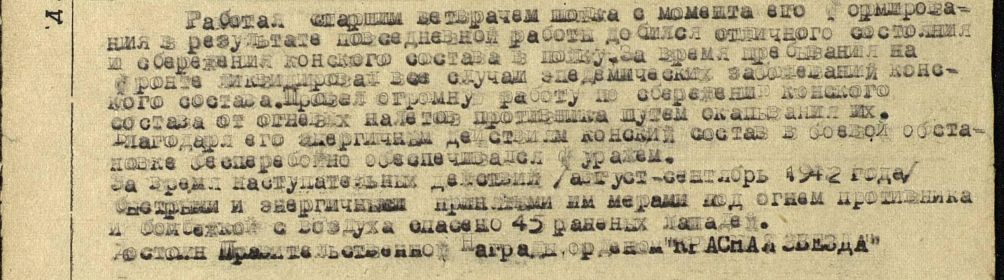 Работая старшим ветврачем полка с момента его формирова-
ния в результате повседневной работы добился отличного состояния
и сбережения конского состава в полку. За время пребывания на
фронте ликвидировал все случаи эпедемических заболеваний конс-
кого состава. Провел огромную работу по сбережению конского
состава от огневых налетов противника путем окапывания их.
Благодаря его энергичным действиям конский состав в боевой обста-
новке бесперебойно обеспечивался фуражем.
За время наступательных действий /август-сентябрь 1942 года/
быстрыми и энергичными принятыми им мерами под огнем противника
и бомбежкой с воздуха спасено 45 раненых лашадей.
Достоин Правительственной Награды, орденом "КРАСНАЯ ЗВЕЗДА"